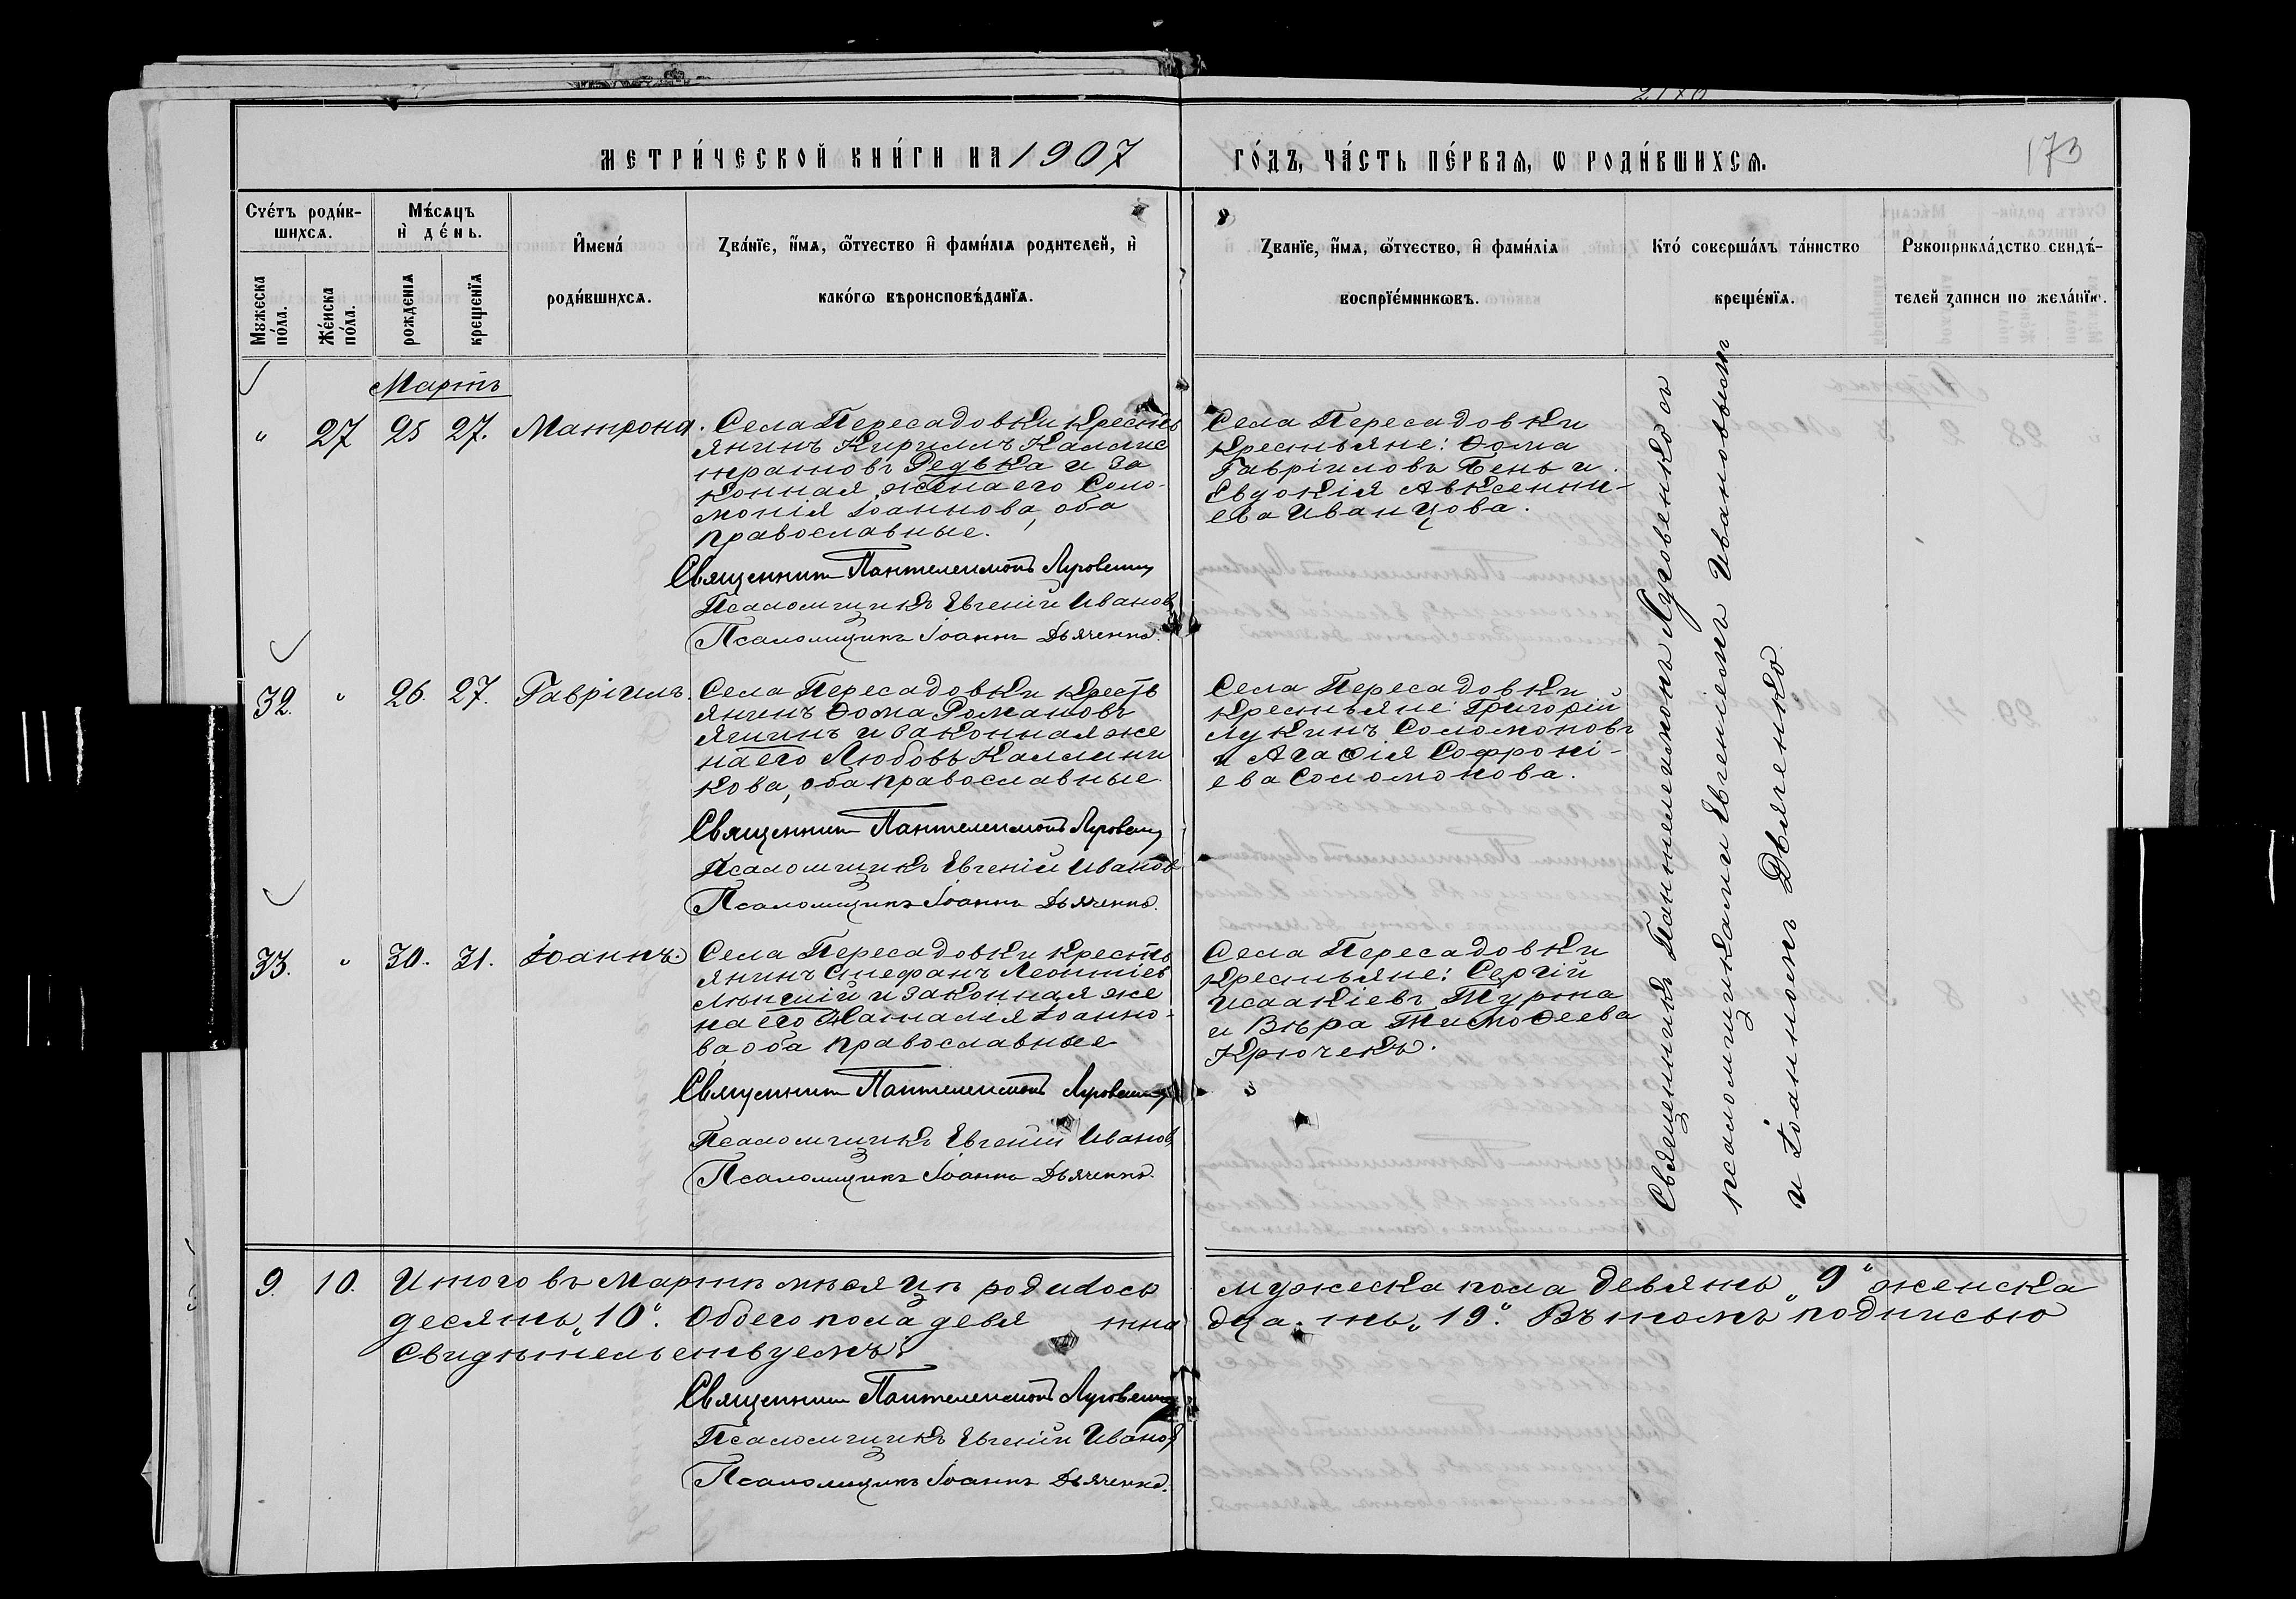 2170
МЕТРИ́ЧЕСКОЙ КНИ́ГИ НА 1907
ГО́ДЪ, ЧА́СТЬ ПЕ́РВАѦ, Ѡ РОДИ́ВШИХСѦ.
173
Счє́тъ роди́в-
шихсѧ.
Мѹжєска по́ла.
Жє́нска по́ла.
Мѣ́сѧцъ
и҆ дє́нь.
рождєніѧ
крєщєніѧ
И҆мєна́
роди́вшихсѧ.
Зва́нїє, и҆́мѧ, ѻ҆́тчєство и҆ фами́лїѧ родитєлєй, и҆
како́гѡ вѣроисповѣ́данїѧ.
Зва́нїє, и҆́мѧ, ѻ҆́тчєство, и҆ фами́лїѧ
воспрїє́мникѡвъ.
Кто́ совєрша́лъ та́инство
крєщє́нїѧ.
Рѹкоприкла́дство свидѣ́-
тєлєй записи по жєла́нїю.
Мартъ
" 27 25 27. Матрона.
Села Пересадовки кресть
янинъ Кириллъ Каллис
тратовъ Редька и за
конная жена его Соло-
монія Іоаннова, оба
православные.
Священник Пантелеимонъ Луговенко
Псаломщикъ Евгеній Иванов
Псаломщикъ Іоаннъ Дьяченко.
Села Пересадовки
крестьяне: Ѳома
Гавріиловъ Бень и
Евдокія Авксенти-
ева Иванцова.
32. " 26. 27. Гавріилъ.
Села Пересадовки кресть
янинъ Ѳома Романовъ
Ягнинъ и законная же
на его Любовь Каллини
кова, оба православные.
Священник Пантелеимонъ Луговенко
Псаломщикъ Евгеній Иванов
Псаломщикъ Іоаннъ Дьяченко.
Села Пересадовки
крестьяне: Григорій
Лукинъ Соломоновъ
и Агафія Софроні-
ева Соломонова.
33. " 30. 31. Іоаннъ.
Села Пересадовки кресть
янинъ Стефанъ Леонтіев
и законная же
на его Наталія Іоанно-
ва, оба православные
Священник Пантелеимонъ Луговенко
Псаломщикъ Евгеній Иванов
Псаломщикъ Іоаннъ Дьяченко.
Села Пересадовки
крестьяне: Сергій
Исаакіевъ Турта
и Вѣра Тимоѳеева
Крючекъ.
Священникъ Пантелеимонъ Луговенко съ
псаломщиками Евгеніемъ Ивановымъ
и Іоанномъ Дьяченко
9. 10. Итого въ Мартѣ мѣсяцѣ родилось мужеска пола девять „9" женска
десять „10". Обоего пола девя тна дца ть „19". Въ томъ подписью
Свидѣтельствуемъ:
Священник Пантелеимонъ Луговенко
Псаломщикъ Евгеній Иванов
Псаломщикъ Іоаннъ Дьяченко.